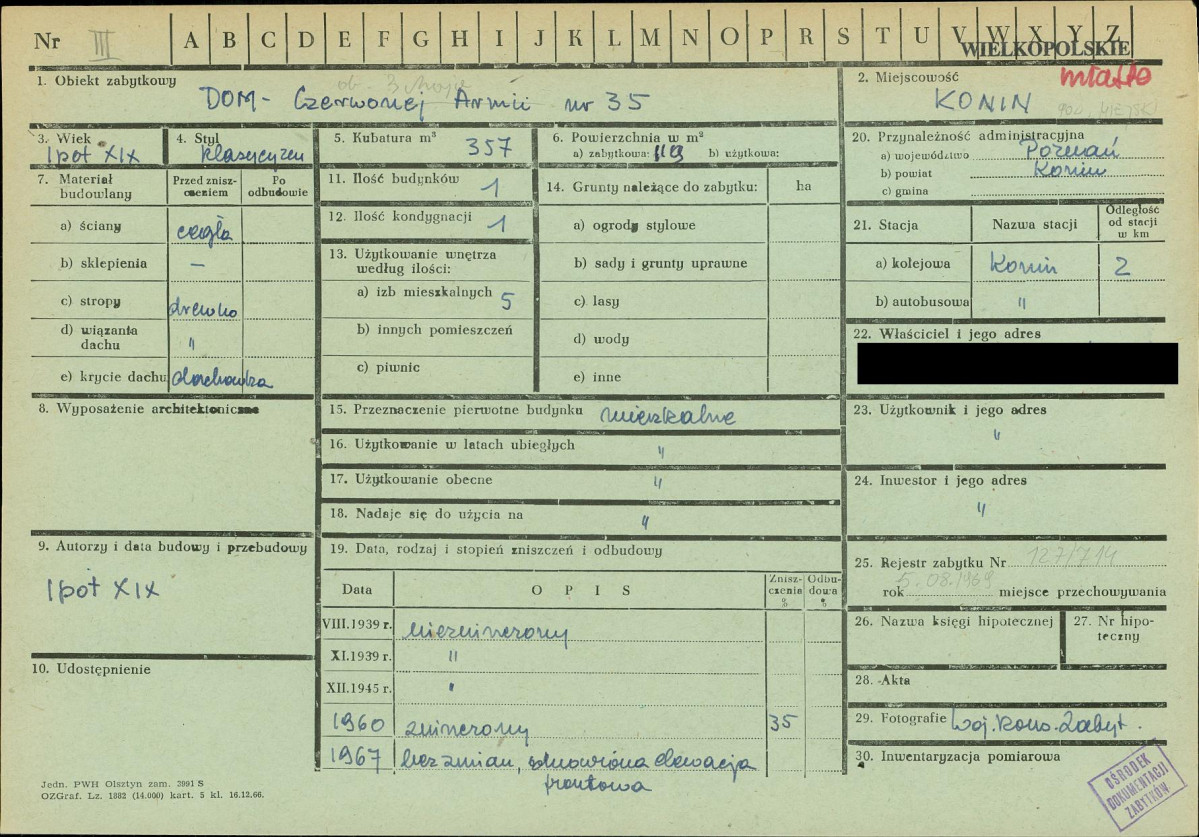 Nr III
A B C D E F G H I J K L M N O P R S T U V W X Y Z
WIELKOPOLSKIE
1. Obiekt zabytkowy
ob. 3 Maja
DOM - Czerwonej Armii nr 35
2. Miejscowość
miasto
KONIN
3. Wiek
I poł XIX
4. Styl
klasycyzm
5. Kubatura m³ 357
6. Powierzchnia w m²
a) zabytkowa: 119 b) użytkowa:
20. Przynależność administracyjna
a) województwo Poznań
b) powiat Konin
c) gmina
7. Materiał budowlany
Przed zniszczeniem
Po odbudowie
a) ściany cegła
b) sklepienia —
c) stropy drewno
d) wiązania dachu "
e) krycie dachu dachówka
11. Ilość budynków 1
12. Ilość kondygnacji 1
13. Użytkowanie wnętrza według ilości:
a) izb mieszkalnych 5
b) innych pomieszczeń
c) piwnic
14. Grunty należące do zabytku: ha
a) ogrody stylowe
b) sady i grunty uprawne
c) lasy
d) wody
e) inne
21. Stacja Nazwa stacji Odległość od stacji w km
a) kolejowa Konin 2
b) autobusowa "
22. Właściciel i jego adres
8. Wyposażenie architektoniczne
15. Przeznaczenie pierwotne budynku mieszkalne
16. Użytkowanie w latach ubiegłych "
17. Użytkowanie obecne "
18. Nadaje się do użycia na "
23. Użytkownik i jego adres
"
24. Inwestor i jego adres
"
9. Autorzy i data budowy i przebudowy
I poł XIX
10. Udostępnienie
19. Data, rodzaj i stopień zniszczeń i odbudowy
Data OPIS Zniszczenia % Odbudowa %
VIII.1939 r. niezniszczony
XI.1939 r. "
XII.1945 r. "
1960 zniszczony 35
1967 bez zmian, odnowiona elewacja
frontowa
25. Rejestr zabytku Nr 127/714
rok 5.08.1969 miejsce przechowywania
26. Nazwa księgi hipotecznej
27. Nr hipoteczny
28. Akta
29. Fotografie Woj. Kons. Zabyt.
30. Inwentaryzacja pomiarowa
OŚRODEK
DOKUMENTACJI
ZABYTKÓW
Jedn. PWH Olsztyn zam. 3991 S
OZGraf. Lz. 1882 (14.000) kart. 5 kl. 16.12.66.